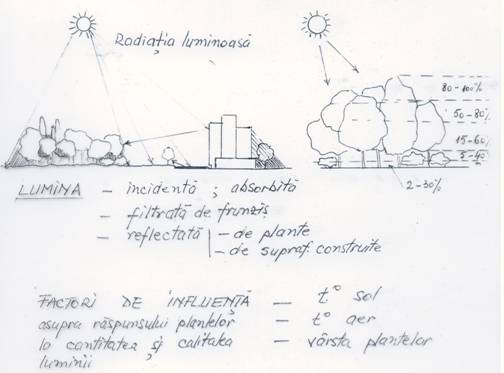 Radiația luminoasă
80-100%
50-80%
15-60%
5-40
2-30%
LUMINA - incidentă ; absorbită
- filtrată de frunziș
- reflectată - de plante
- de supraf. construite
FACTORI DE INFLUENȚĂ - t° sol
asupra răspunsului plantelor - t° aer
la cantitatea și calitatea - vârsta plantelor
luminii